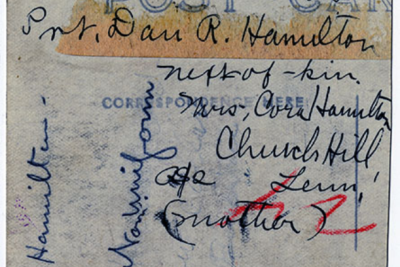 POST CARD
Pvt. Dan R. Hamilton
next-of-kin.
CORRESPONDENCE HERE
Mrs, Cora Hamilton
Church Hill
Tenn.
(mother)
Hamilton-
uniform